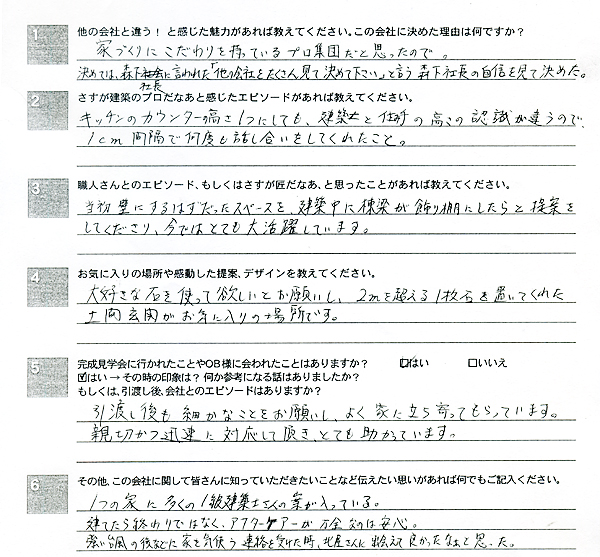 1 他の会社と違う！と感じた魅力があれば教えてください。この会社に決めた理由は何ですか？
家づくりにこだわりを持っているプロ集団だと思ったので。
決めては、森下社会に言われた「他の会社をたくさん見て決めて下さい」と言う森下社長の自信を見て決めた。
社長
2 さすが建築のプロだなあと感じたエピソードがあれば教えてください。
キッチンのカウンター高さ1つにしても、建築士と住む側の高さの認識が違うので、
1cm間隔で何度も話し合いをしてくれたこと。
3 職人さんとのエピソード、もしくはさすが匠だなあ、と思ったことがあれば教えてください。
当初壁にするはずだったスペースを、建築中に棟梁が飾り棚にしたらと提案を
してくださり、今ではとても大活躍しています。
4 お気に入りの場所や感動した提案、デザインを教えてください。
大好きな石を使って欲しいとお願いし、2mを超える1枚石を置いてくれた
土間玄関がお気に入りの場所です。
5 完成見学会に行かれたことやOB様に会われたことはありますか？ ☑はい □いいえ
☑はい → その時の印象は？ 何か参考になる話はありましたか？
もしくは、引渡し後、会社とのエピソードはありますか？
引渡し後も細かなことをお願いし、よく家に立ち寄ってもらっています。
親切かつ迅速に対応して頂き、とても助かっています。
6 その他、この会社に関して皆さんに知っていただきたいことなど伝えたい思いがあれば何でもご記入ください。
1つの家に多くの1級建築士さんの案が入っている。
建てたら終わりではなく、アフターケアーが万全なのは安心。
強い台風の後などに家を気使う連絡を受けた時、北屋さんに出会えて良かったなぁと思った。